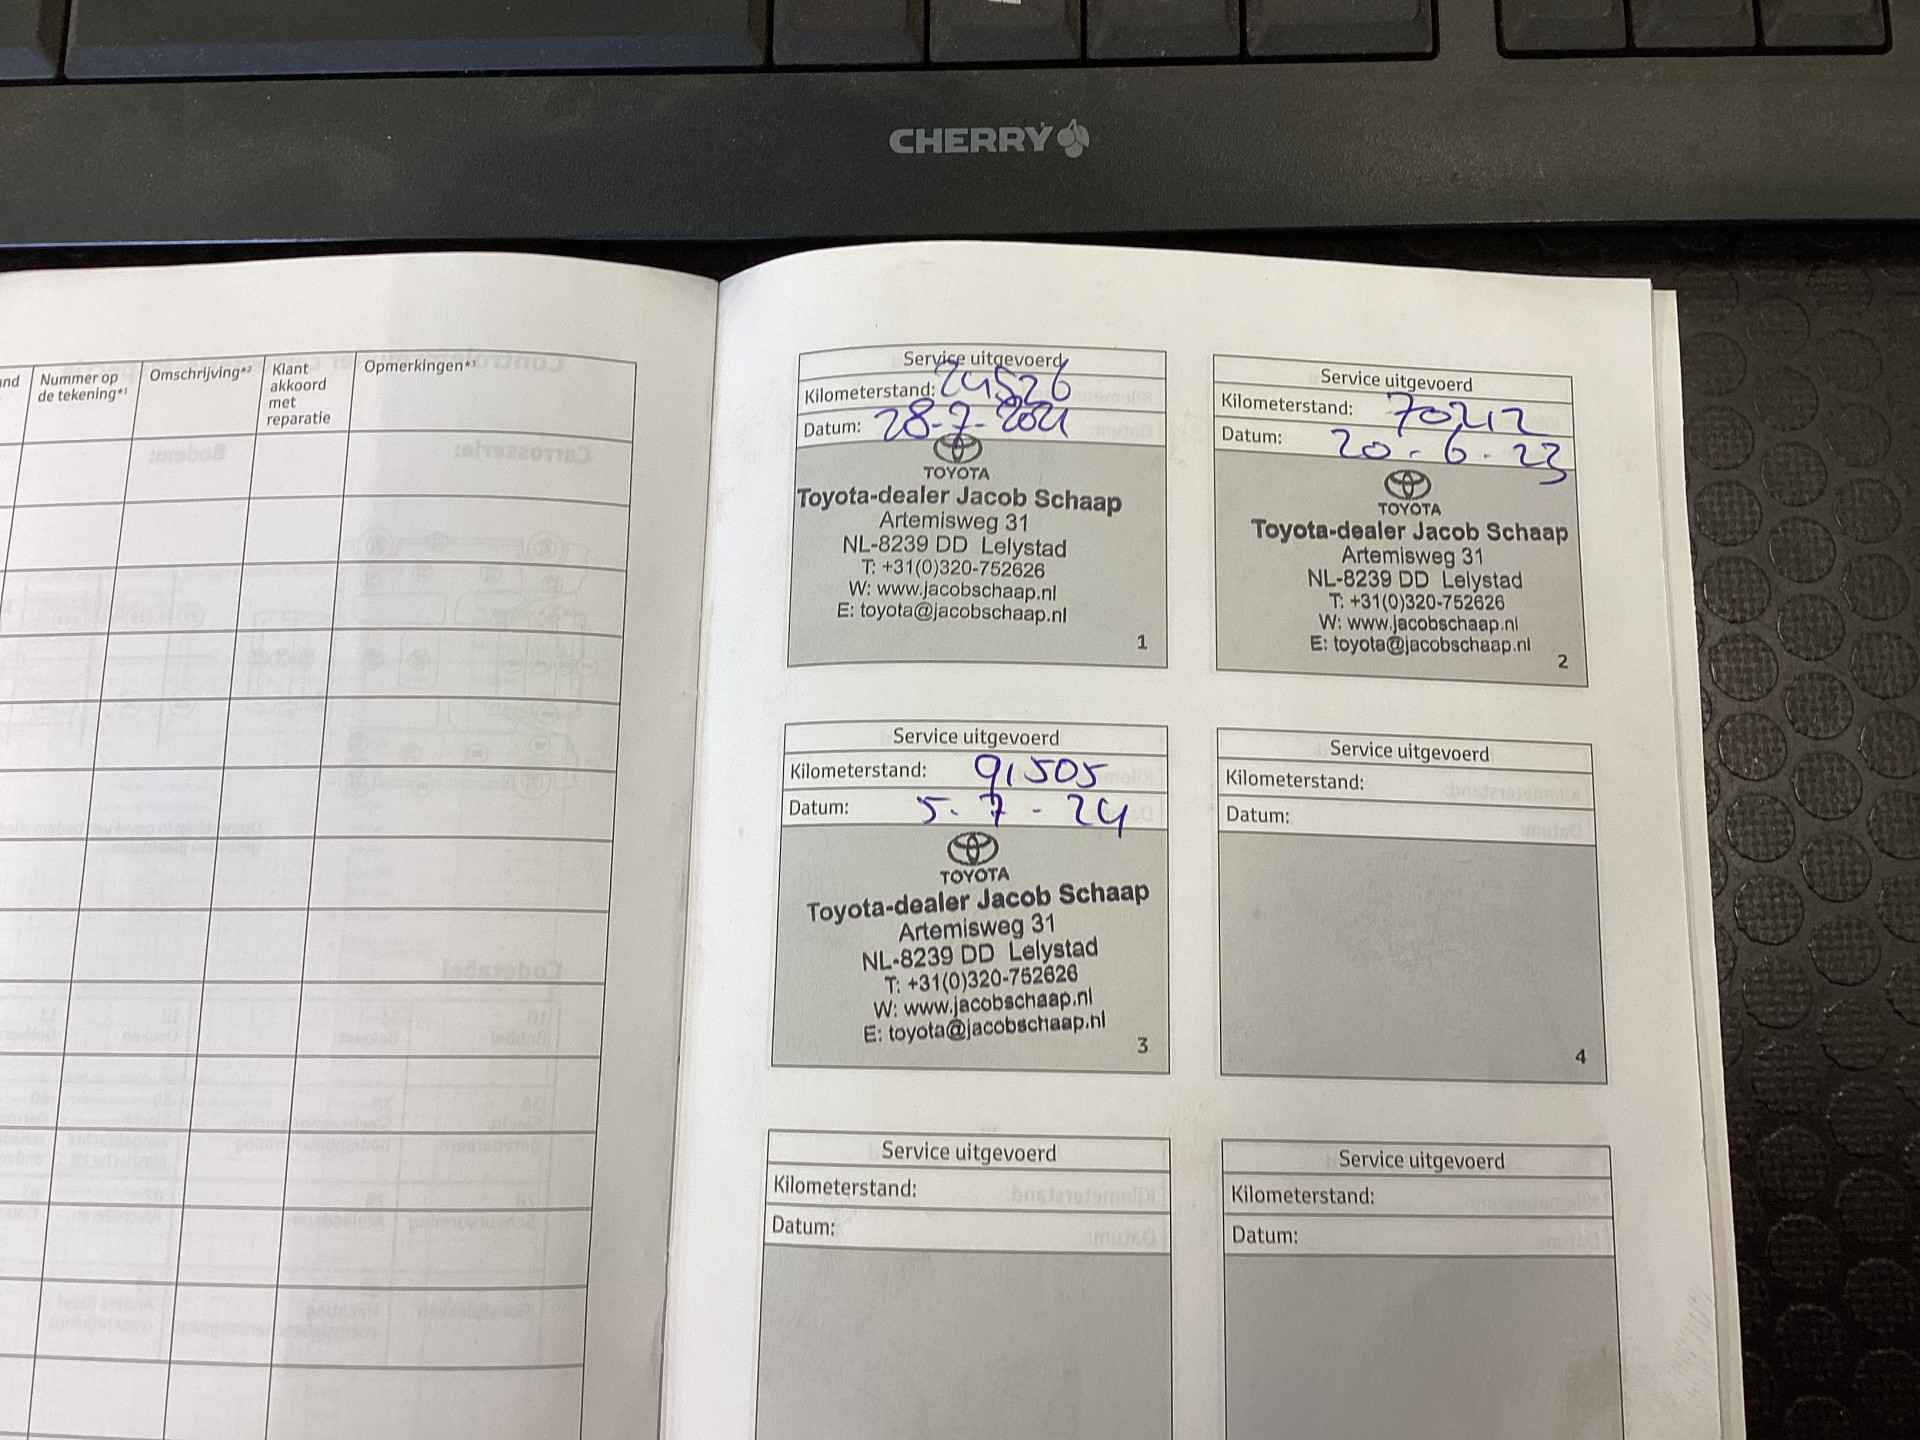 CHERRY
Nummer op
de tekening*1
Omschrijving*2
Klant
akkoord
met
reparatie
Opmerkingen*3
Service uitgevoerd
Kilometerstand: 24526
Datum: 28-7-2021
TOYOTA
Toyota-dealer Jacob Schaap
Artemisweg 31
NL-8239 DD Lelystad
T: +31(0)320-752626
W: www.jacobschaap.nl
E: toyota@jacobschaap.nl
1
Service uitgevoerd
Kilometerstand: 70212
Datum: 20-6-23
TOYOTA
Toyota-dealer Jacob Schaap
Artemisweg 31
NL-8239 DD Lelystad
T: +31(0)320-752626
W: www.jacobschaap.nl
E: toyota@jacobschaap.nl
2
Service uitgevoerd
Kilometerstand: 91505
Datum: 5-7-24
TOYOTA
Toyota-dealer Jacob Schaap
Artemisweg 31
NL-8239 DD Lelystad
T: +31(0)320-752626
W: www.jacobschaap.nl
E: toyota@jacobschaap.nl
3
Service uitgevoerd
Kilometerstand:
Datum:
4
Service uitgevoerd
Kilometerstand:
Datum:
Service uitgevoerd
Kilometerstand:
Datum: